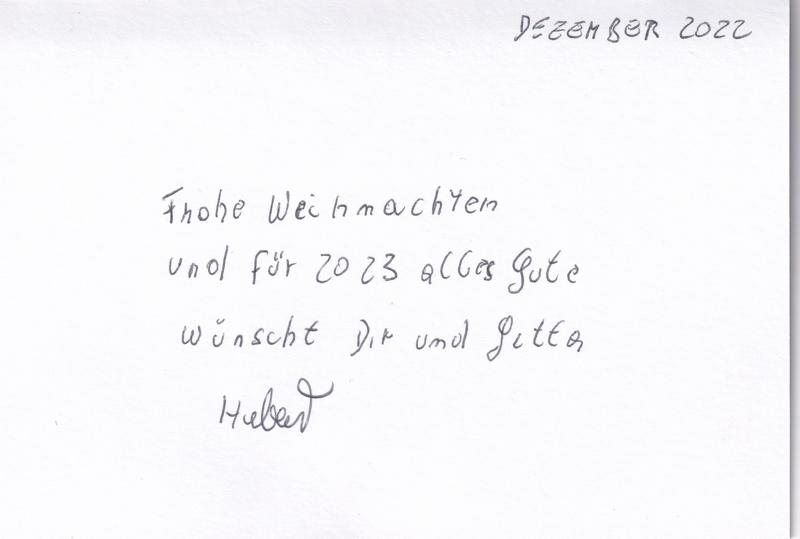 DEZEMBER 2022
Frohe Weihnachten
und für 2023 alles Gute
wünscht Dir und Gitta
Hubert